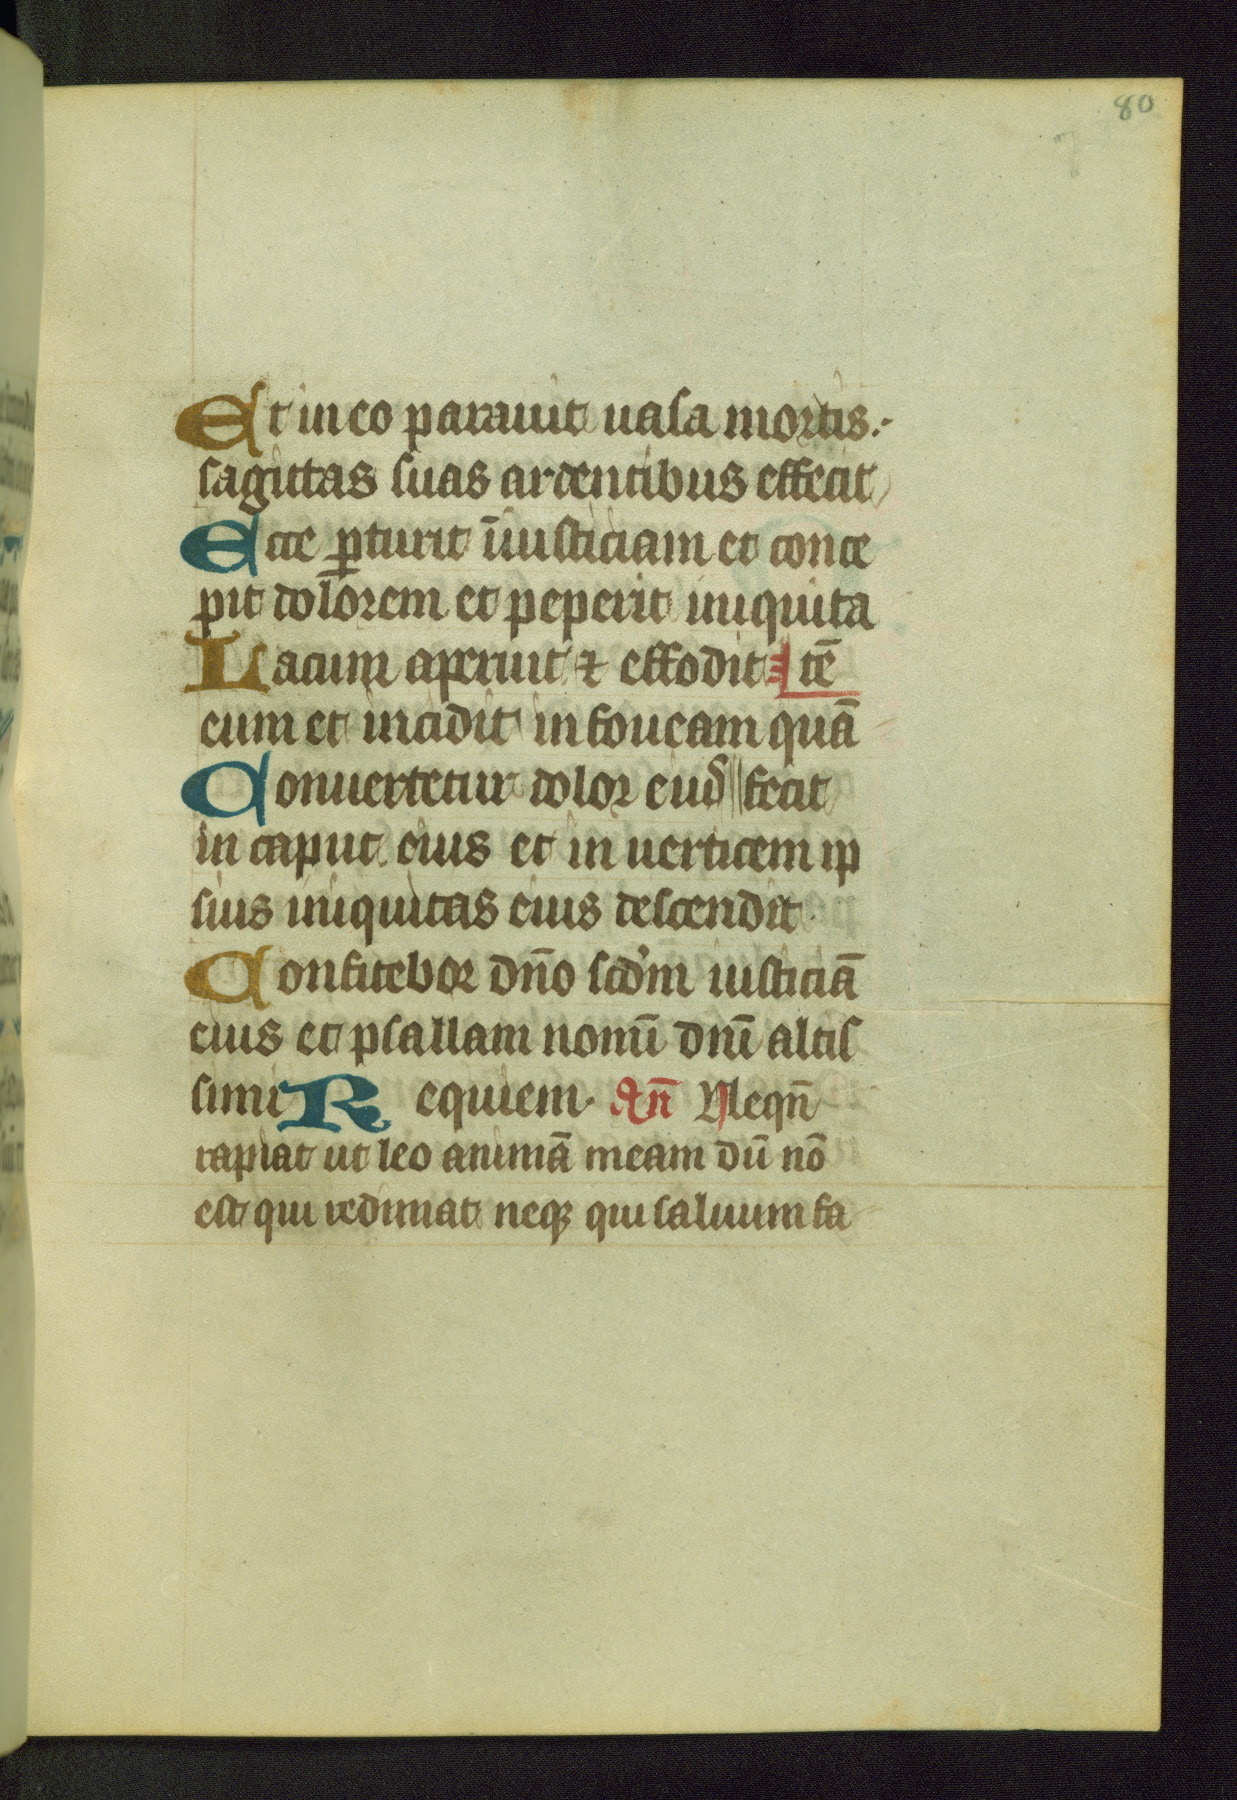 80
Et in eo parauit uasa mortis.
sagittas suas ardentibus effecit
Ecce p̱turit īiusticiam et conce
pit dolorem et peperit iniquita
Lacum aperuit ⁊ effodit tē
eum et incidit in foueam quā
Conuertetur dolor eiuꝰ fecit
in caput eius et in uerticem ip
sius iniquitas eius descendit
Confitebor dn̄o scd̓m iusticiā
eius et psallam nomī dn̄i altis
simi Requiem. an̄ Neqn̄
rapiat ut leo animā meam dū nō
est qui redimat neqꝫ qui saluum fa